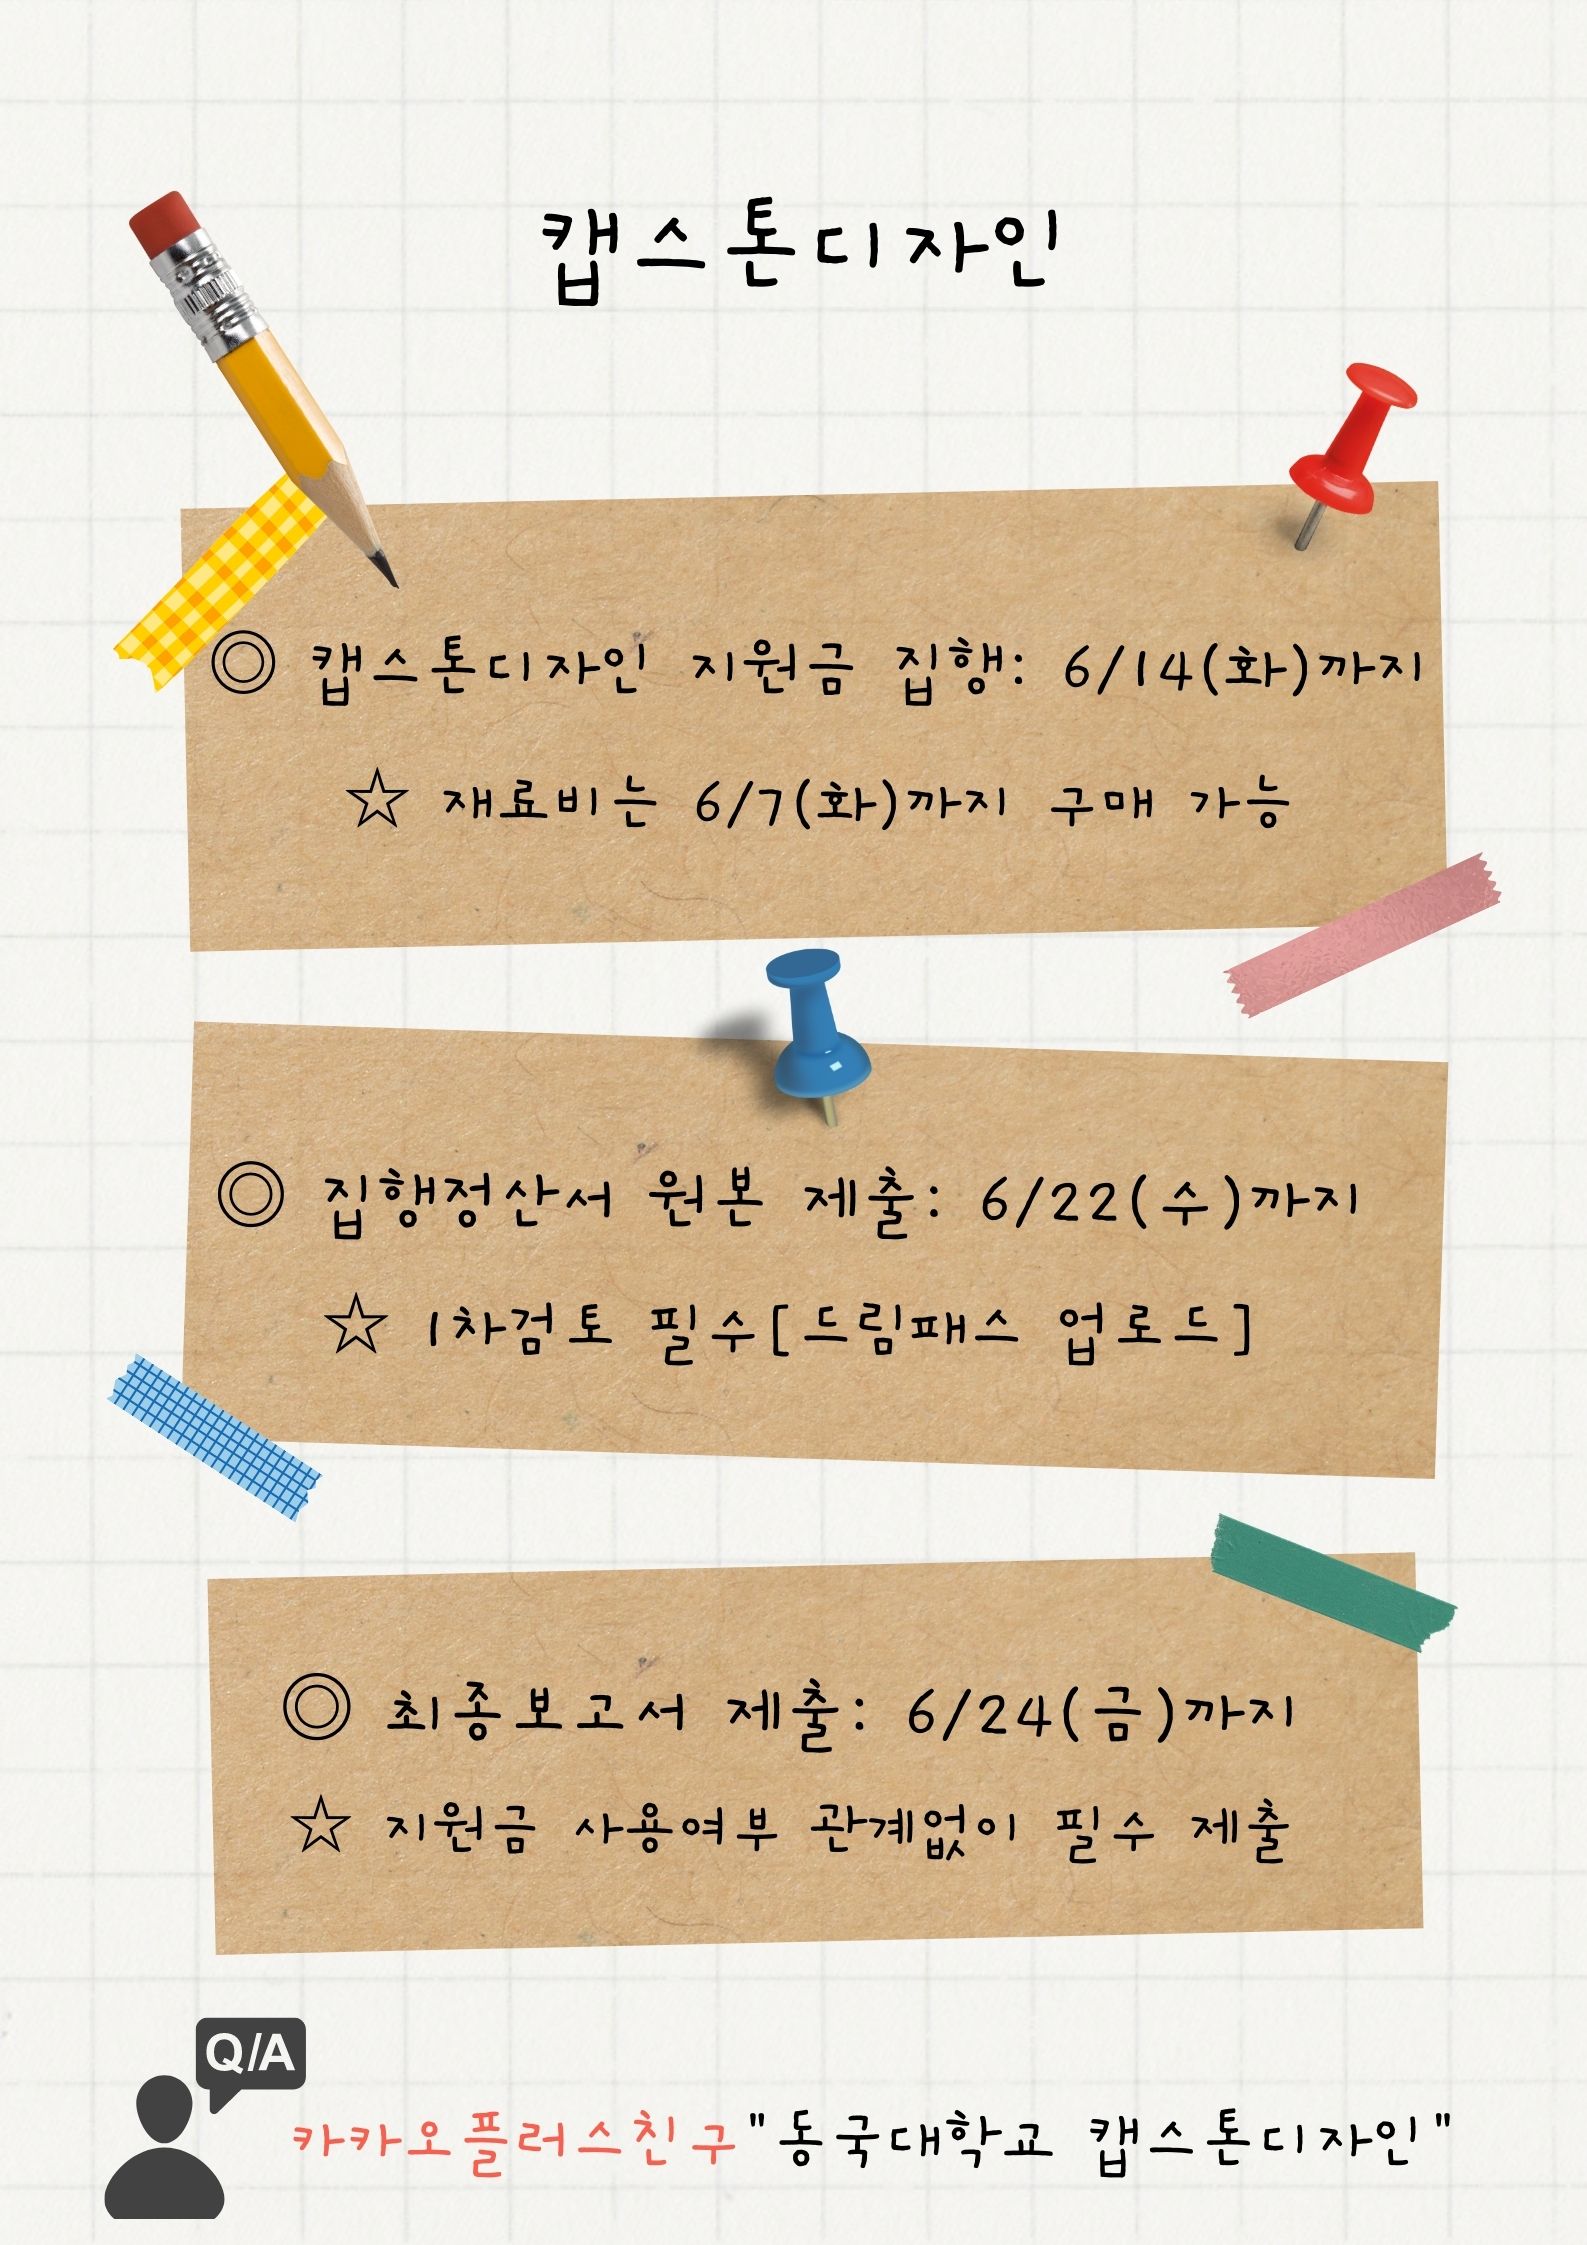 캡스톤디자인
◎ 캡스톤디자인 지원금 집행: 6/14(화)까지
☆ 재료비는 6/7(화)까지 구매 가능
◎ 집행정산서 원본 제출: 6/22(수)까지
☆ 1차검토 필수[드림패스 업로드]
◎ 최종보고서 제출: 6/24(금)까지
☆ 지원금 사용여부 관계없이 필수 제출
Q/A
카카오플러스친구"동국대학교 캡스톤디자인"